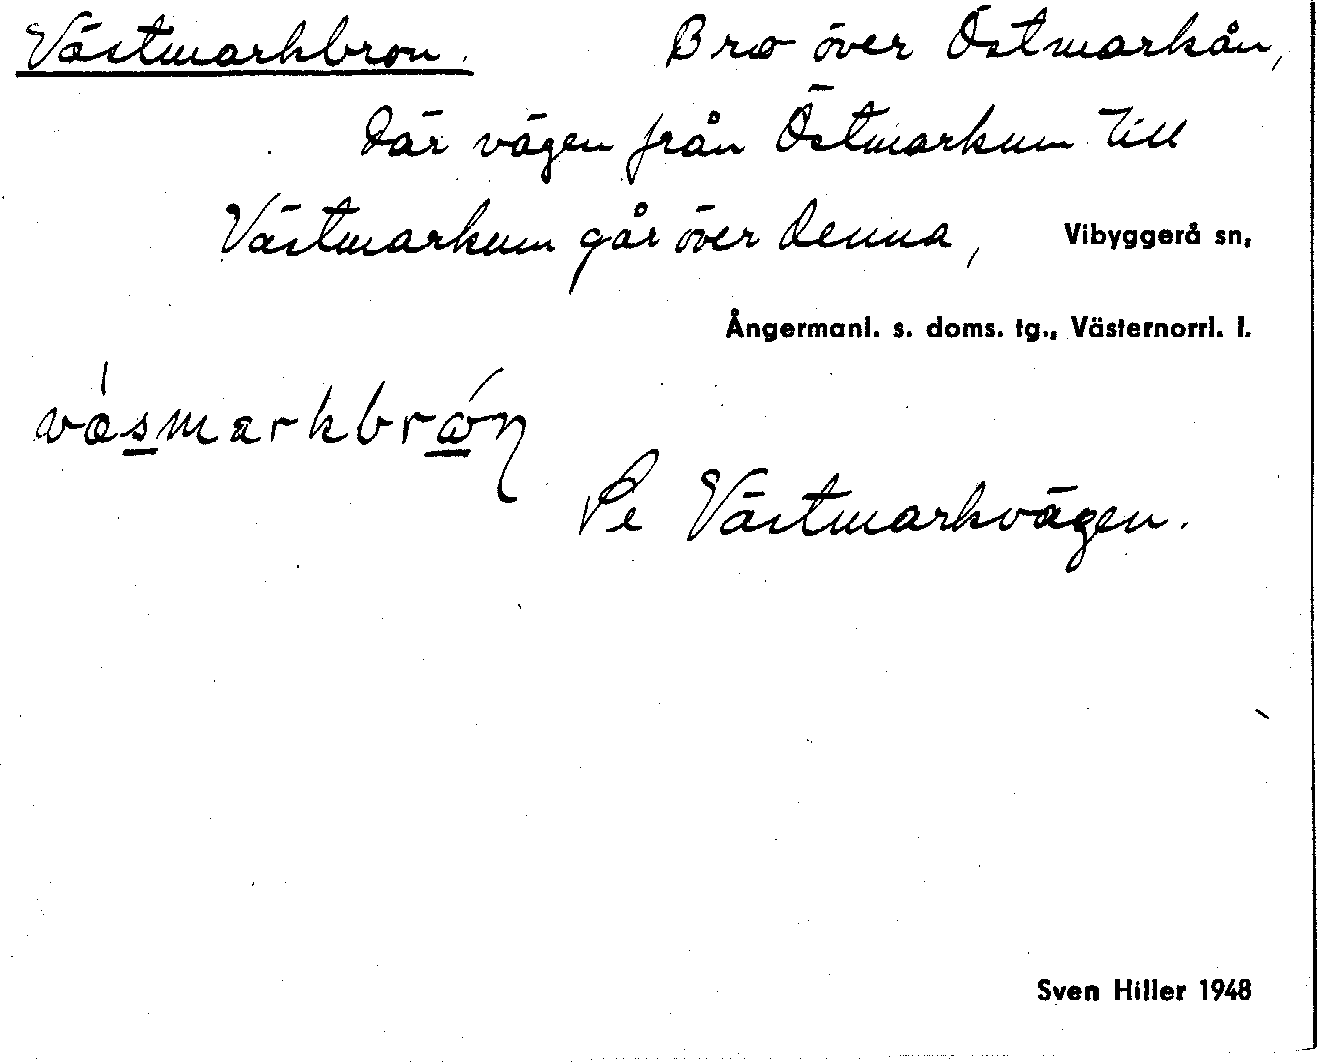 Västmarkbron. Bro över Östmarkån,
där vägen från Östmarkum till
Västmarkum går över denna, Vibyggerå sn,
Ångermanl. s. doms. tg., Västernorrl. l.
Se Västmarkvägen.
Sven Hiller 1948